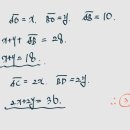 AD=x. BD=y. AB=10.
x+y+AB=28.
x+y=18.
AC=2x. BD=2y.
2x+2y=36.